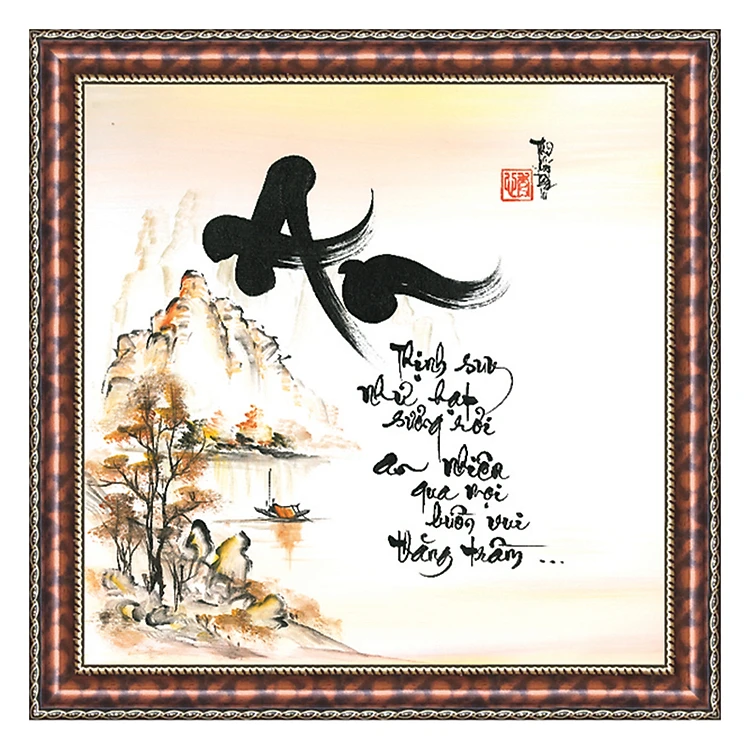 An
Thịnh suy
như hạt
sương rơi
an nhiên
qua mọi
buồn vui
thăng trầm ...